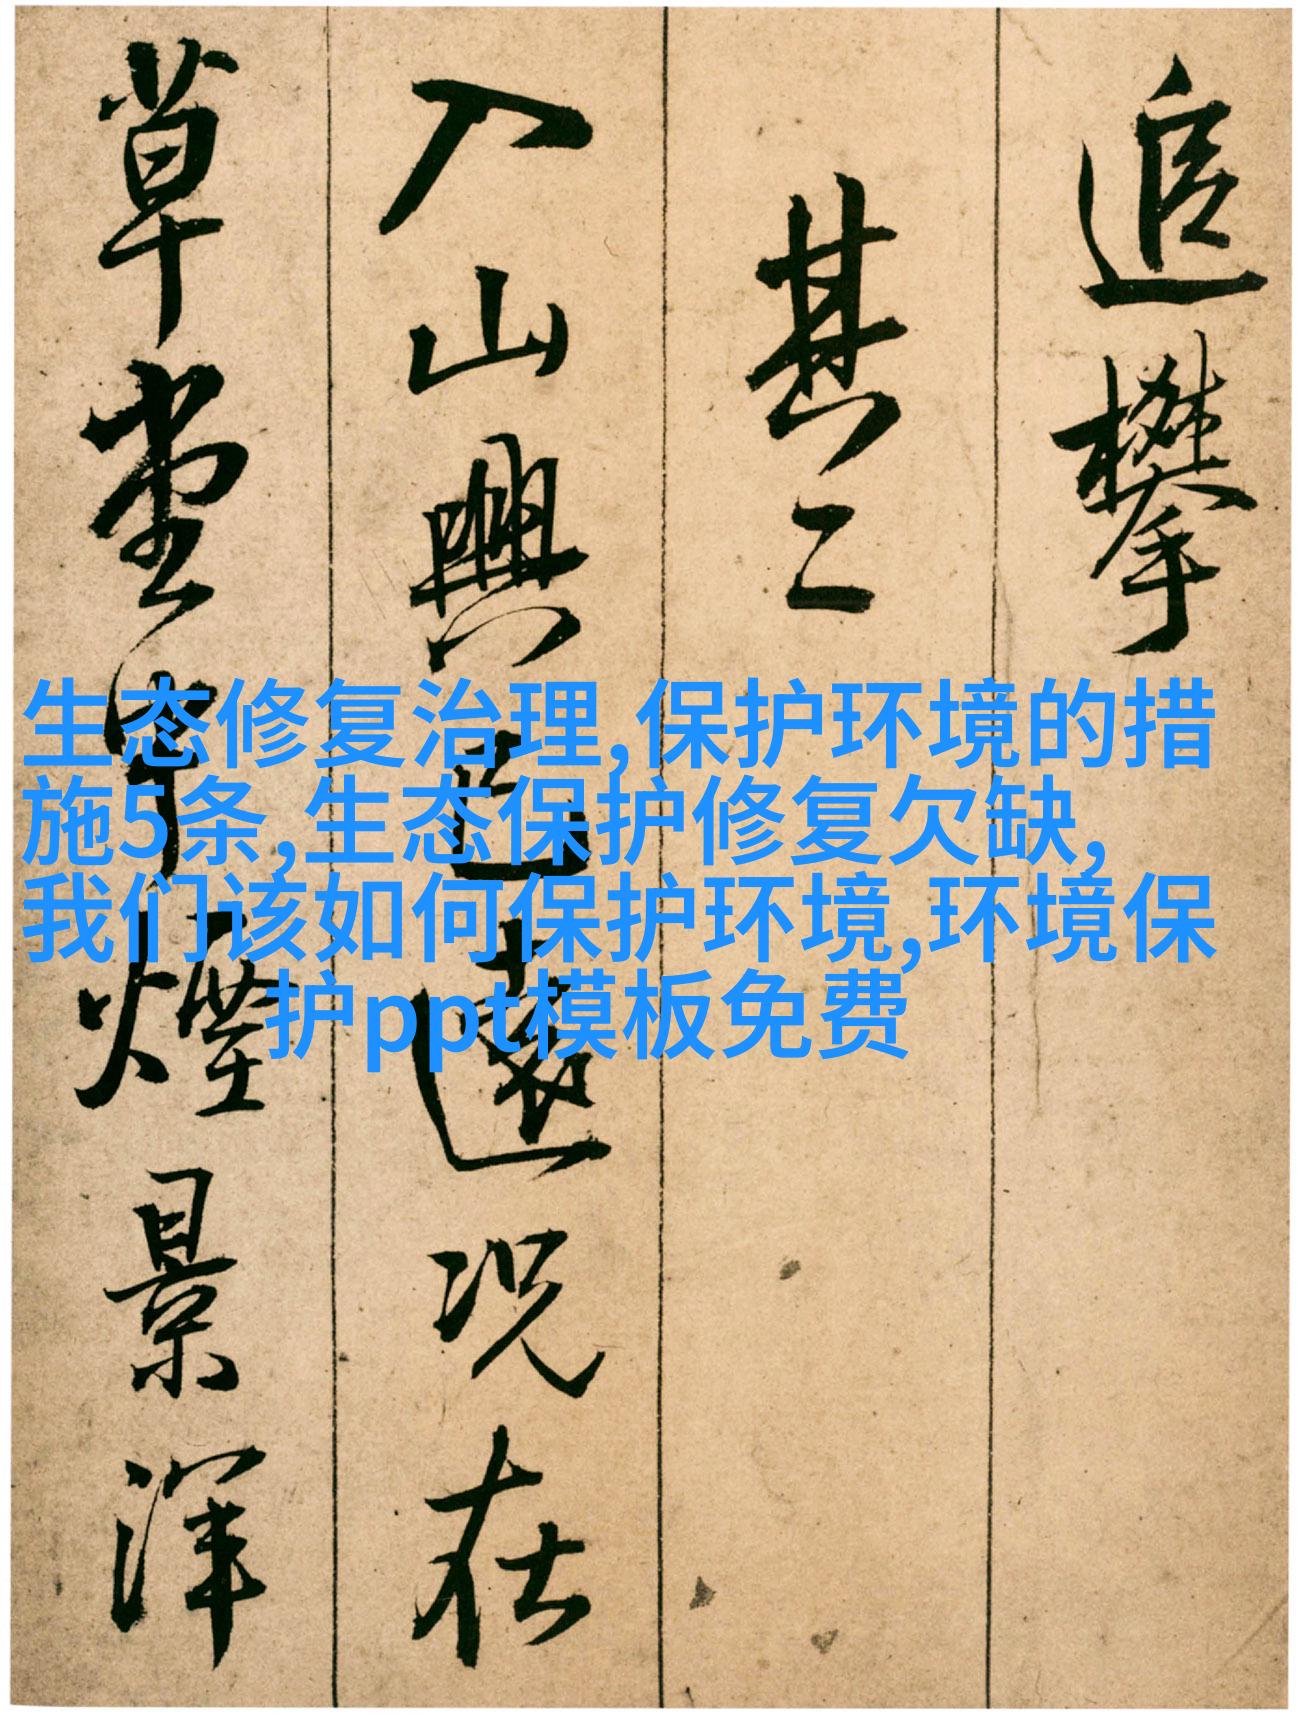 追攀
其二
入山興已遠況在
草堂中煙景渾
生态修复治理,保护环境的措
施5条,生态保护修复欠缺,
我们该如何保护环境,环境保
护ppt模板免费